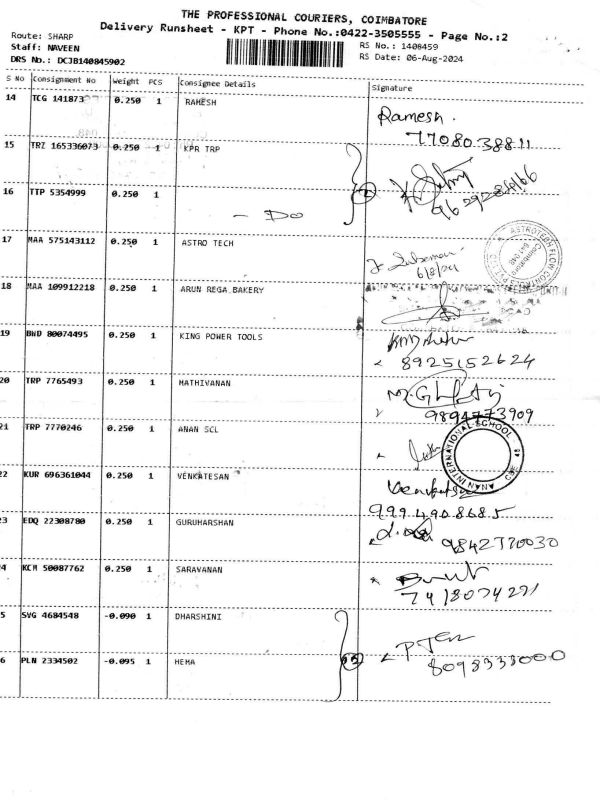 THE PROFESSIONAL COURIERS, COIMBATORE
Delivery Runsheet - KPT - Phone No.:0422-3505555 - Page No.:2
Route: SHARP
Staff: NAVEEN
DRS No.: DCJB140845902
RS No.: 1408459
RS Date: 06-Aug-2024
S No Consignment No Weight PCS Consignee Details Signature
14 TCG 141873 0.250 1 RAMESH Ramesh.
77080 38811
15 TRZ 165336073 0.250 1 KPR TRP
16 TTP 5354999 0.250 1 - Do
17 MAA 575143112 0.250 1 ASTRO TECH
6/8/24
18 MAA 109912218 0.250 1 ARUN REGA BAKERY
19 BWD 80074495 0.250 1 KING POWER TOOLS
8925152624
20 TRP 7765493 0.250 1 MATHIVANAN
9894773909
21 TRP 7770246 0.250 1 ANAN SCL
ANAN INTERNATIONAL SCHOOL
22 KUR 696361044 0.250 1 VENKATESAN
999 490 8685
23 EDQ 22308780 0.250 1 GURUHARSHAN
9842770030
24 KCM 50087762 0.250 1 SARAVANAN
7418074271
5 SVG 4684548 -0.090 1 DHARSHINI
6 PLN 2334502 -0.095 1 HEMA
8098333000